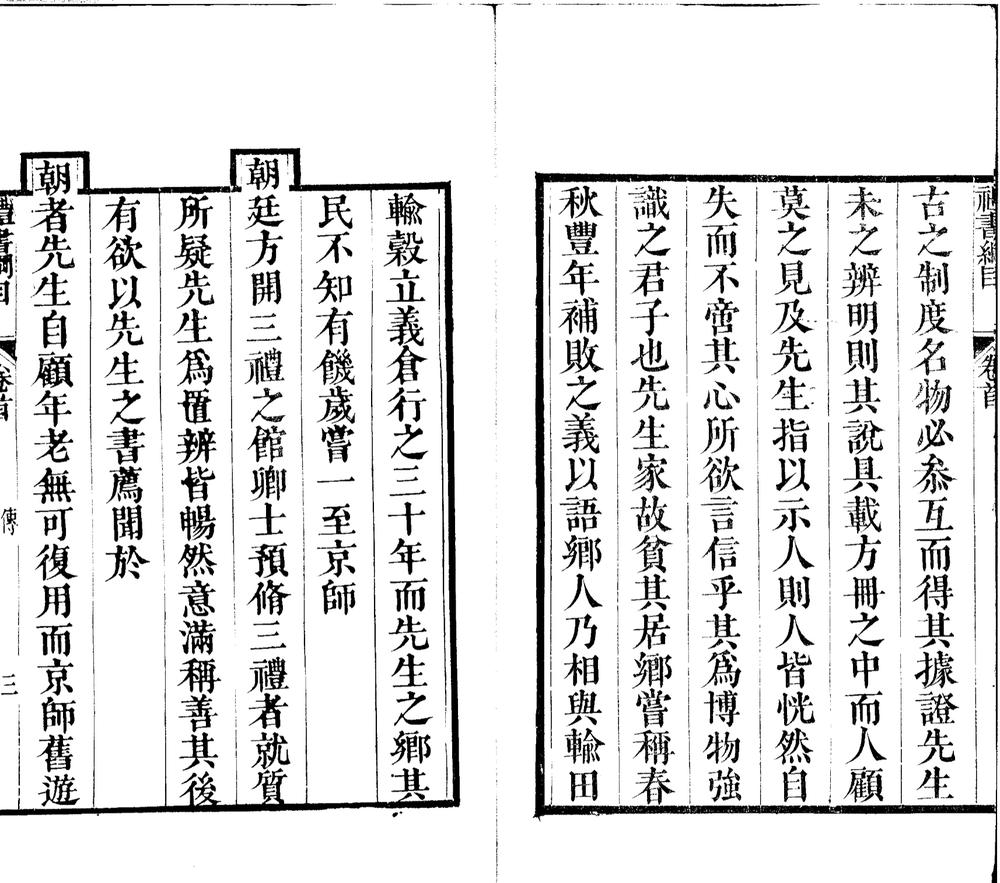 禮書綱目
卷首
古之制度名物必叅互而得其據證先生
未之辨明則其說具載方冊之中而人顧
莫之見及先生指以示人則人皆恍然自
失而不啻其心所欲言信乎其爲博物強
識之君子也先生家故貧其居鄉嘗稱春
秋豐年補敗之義以語鄉人乃相與輸田
輸穀立義倉行之三十年而先生之鄉其
民不知有饑歲嘗一至京師
朝廷方開三禮之館卿士預脩三禮者就質
所疑先生爲置辨皆暢然意滿稱善其後
有欲以先生之書薦聞於
朝者先生自顧年老無可復用而京師舊遊
禮書綱目
卷首
傳
三